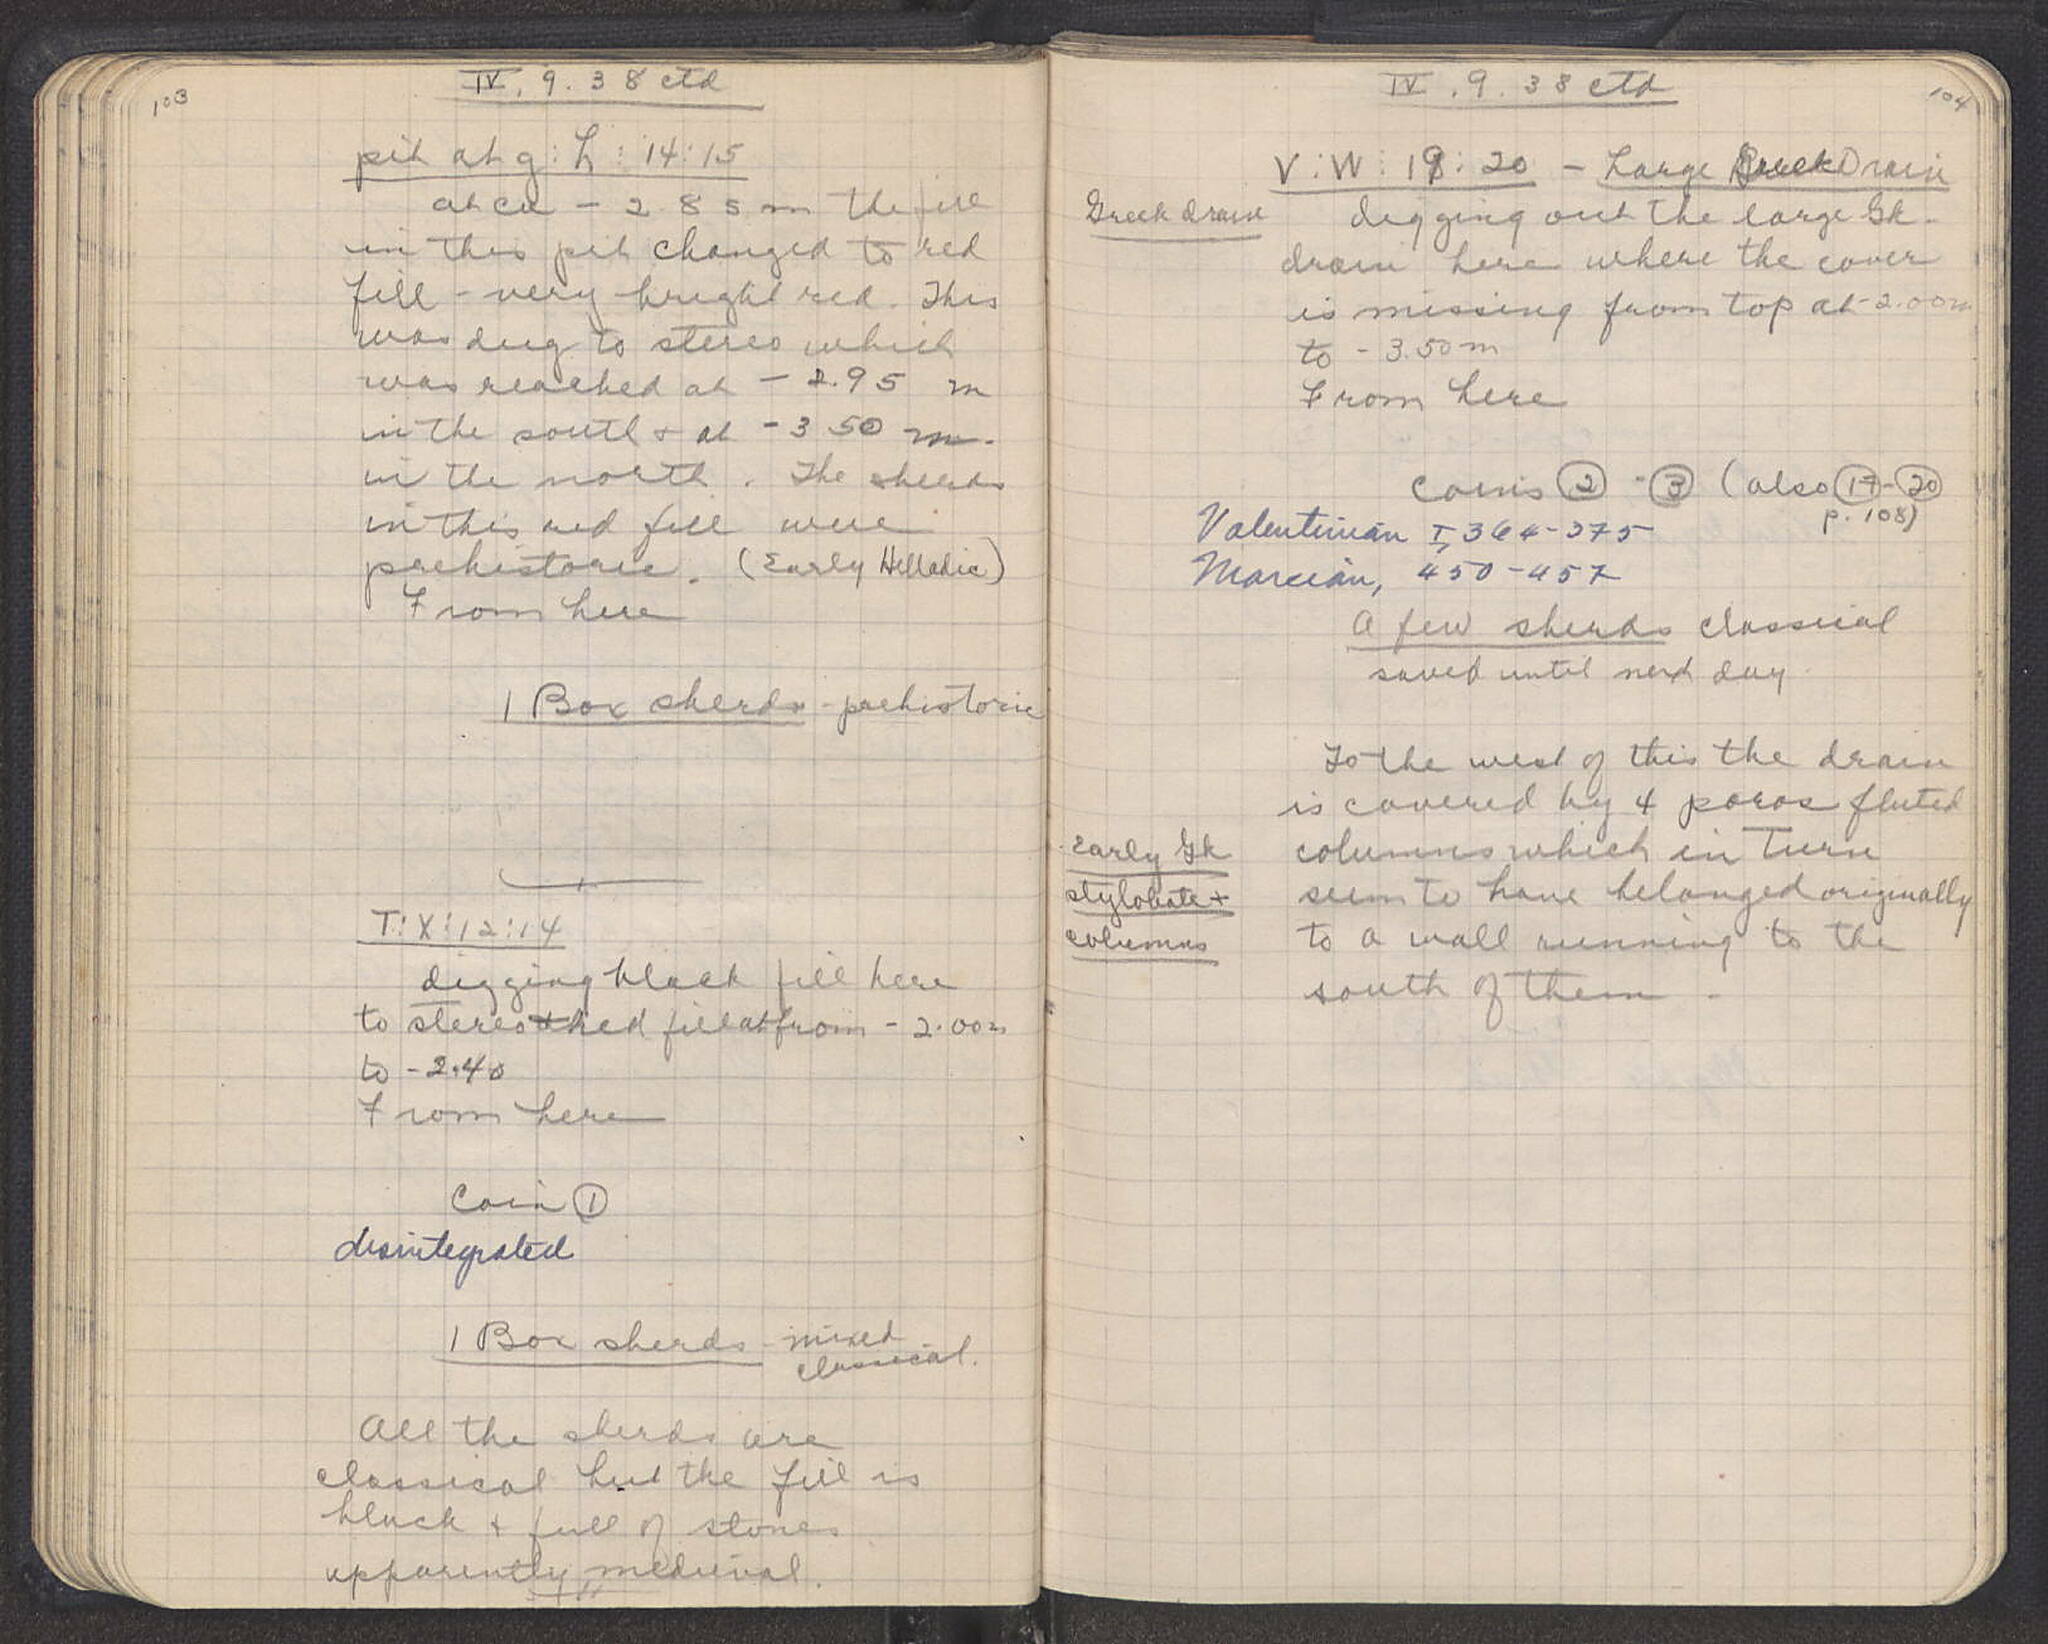 103
IV. 9. 38 ctd
pit at g : h : 14 : 15
at ca - 2.85 m the fill
in this pit changed to red
fill - very bright red. This
was dug to stereo which
was reached at - 2.95 m
in the south + at - 3 50 m.
in the north. The sherds
in this red fill were
prehistoric. (Early Helladic)
From here
1 Box sherds - prehistoric
T : X : 12 : 14
digging black fill here
to stereo red fill from - 2.00m
to - 2.40
From here
Coin 1
disintegrated
1 Box sherds - mixed
classical.
All the sherds are
classical but the fill is
black + full of stones
apparently medieval.
IV. 9. 38 ctd
104
V : W : 19 : 20 - Large Greek Drain
Greek drain
digging out the large Gk.
drain here where the cover
is missing from top at -2.00m
to - 3.50 m
From here
coins 2 - 3 (also 17 - 20
p. 108)
Valentinian I, 364-375
Marcian, 450-457
A few sherds classical
saved until next day.
To the west of this the drain
is covered by 4 poros fluted
Early Gk
stylobate +
columns
columns which in turn
seem to have belonged originally
to a wall running to the
south of them.